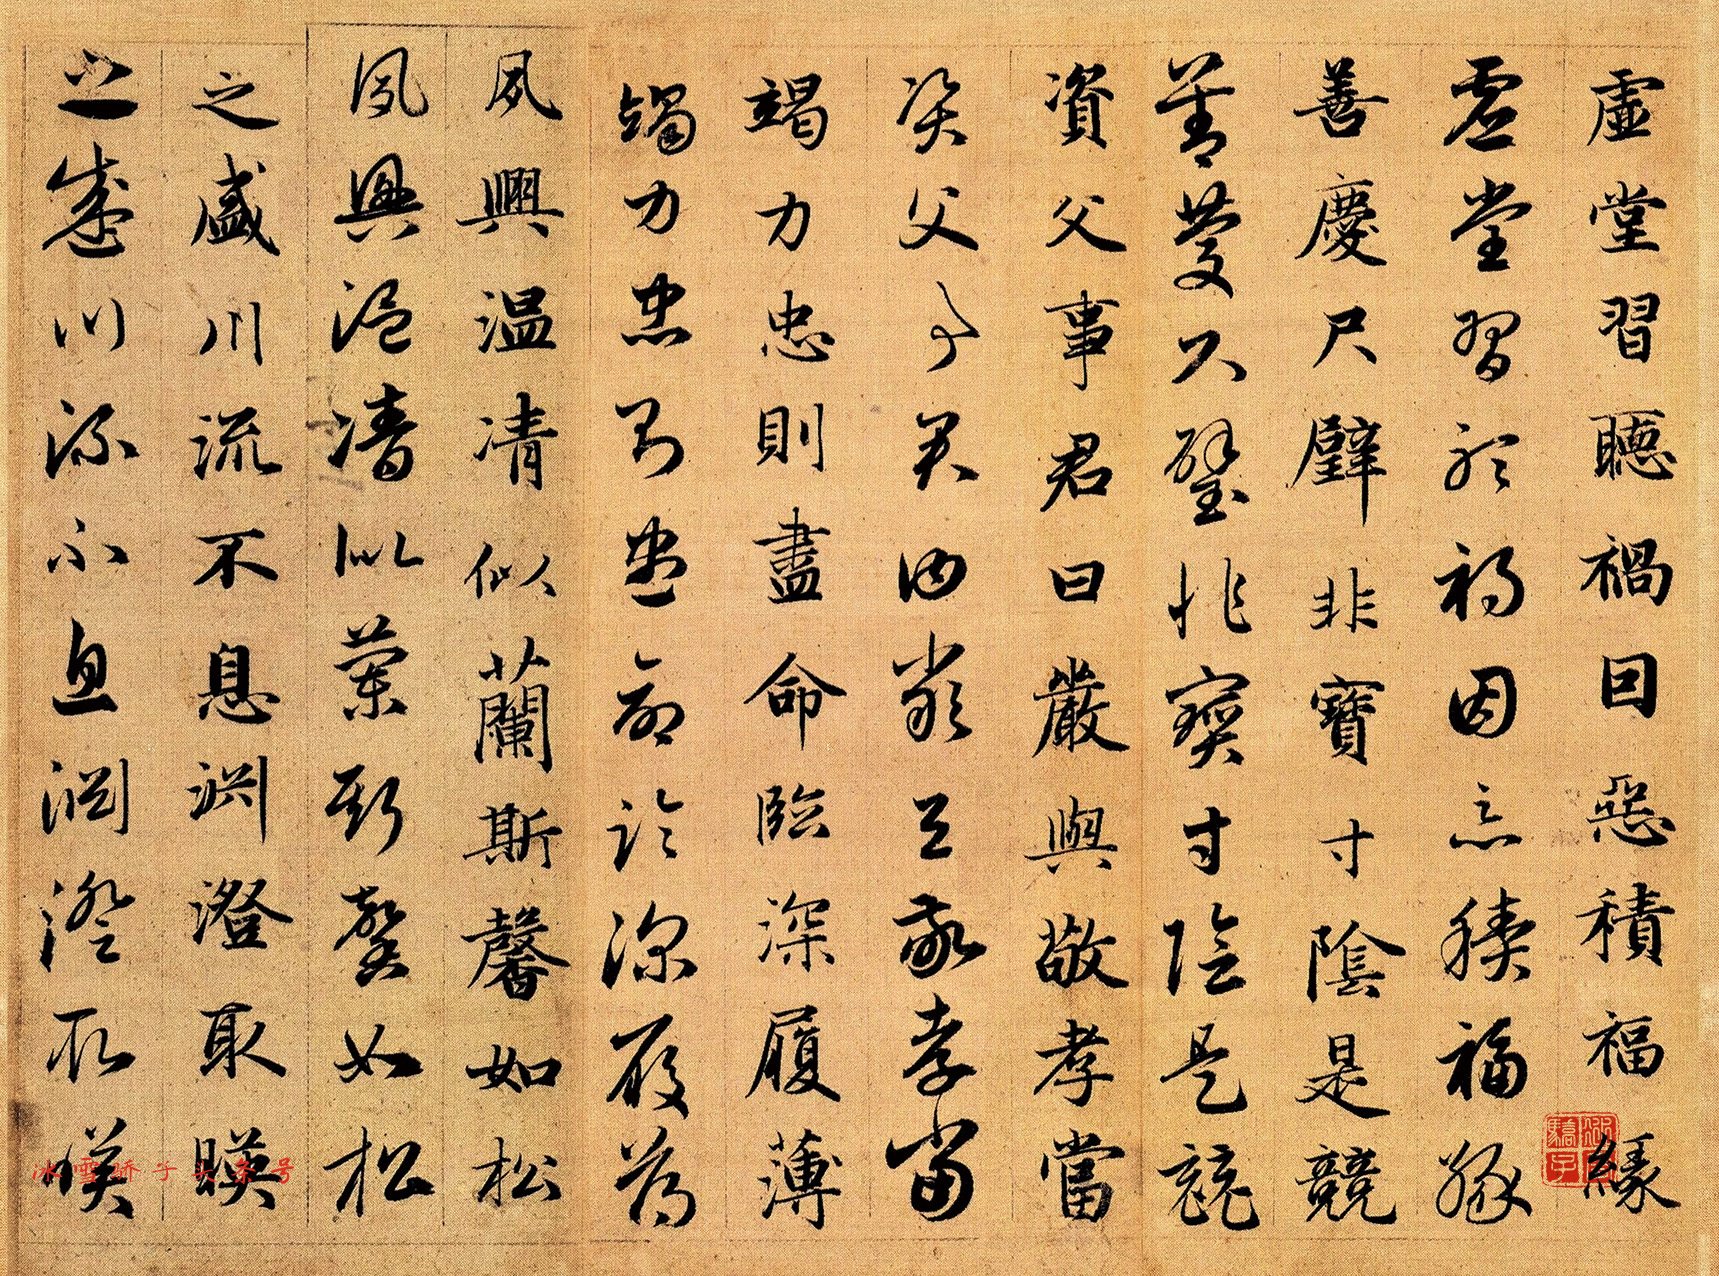 虛堂習聽禍因惡積福緣
虛堂習聽禍因惡積福緣
善慶尺璧非寶寸陰是競
善慶尺璧非寶寸陰是競
資父事君曰嚴與敬孝當
資父事君曰嚴與敬孝當
竭力忠則盡命臨深履薄
竭力忠則盡命臨深履薄
夙興温凊似蘭斯馨如松
夙興温凊似蘭斯馨如松
之盛川流不息淵澄取暎
之盛川流不息淵澄取暎
冰雪驕子
冰雪骄子头条号